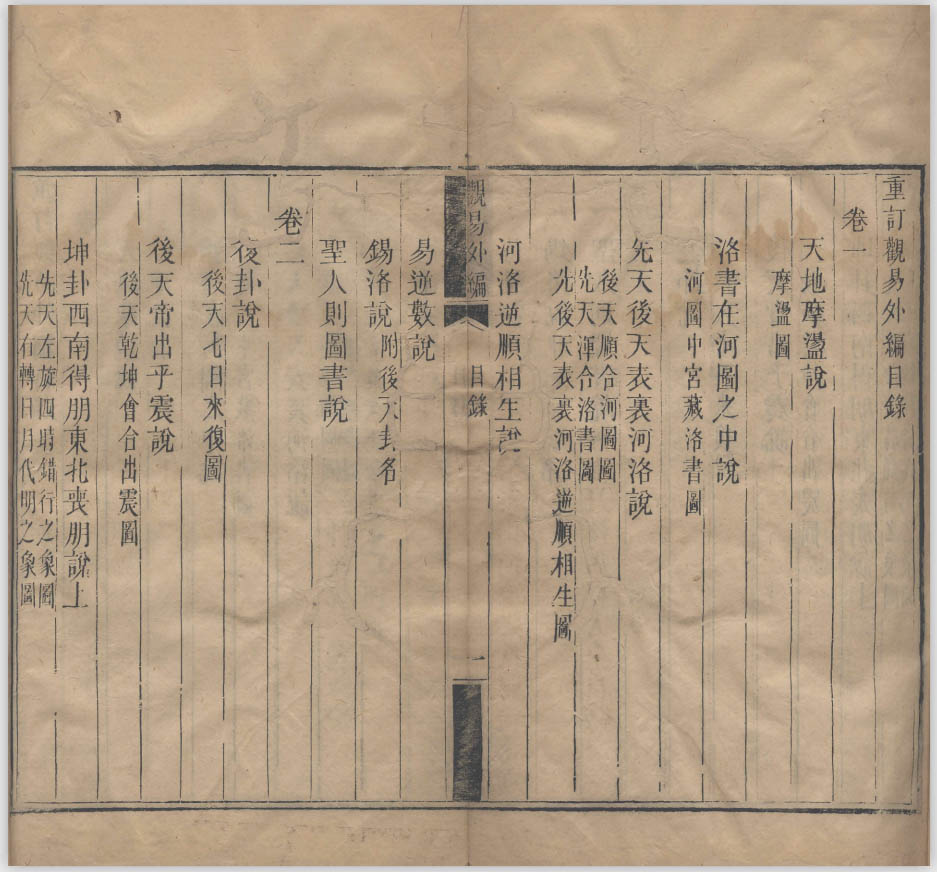 重訂觀易外編目錄
卷一
天地摩盪說
摩盪圖
洛書在河圖之中說
河圖中宮藏洛書圖
先天後天表裏河洛說
後天順合河圖圖
先天渾合洛書圖
先後天表裏河洛逆順相生圖
河洛逆順相生說
觀易外編
目錄
一
易逆數說
錫洛說附後天卦名
聖人則圖書說
卷二
復卦說
後天七日來復圖
後天帝出乎震說
後天乾坤會合出震圖
坤卦西南得朋東北喪朋說上
先天左旋四時錯行之象圖
先天右轉日月代明之象圖